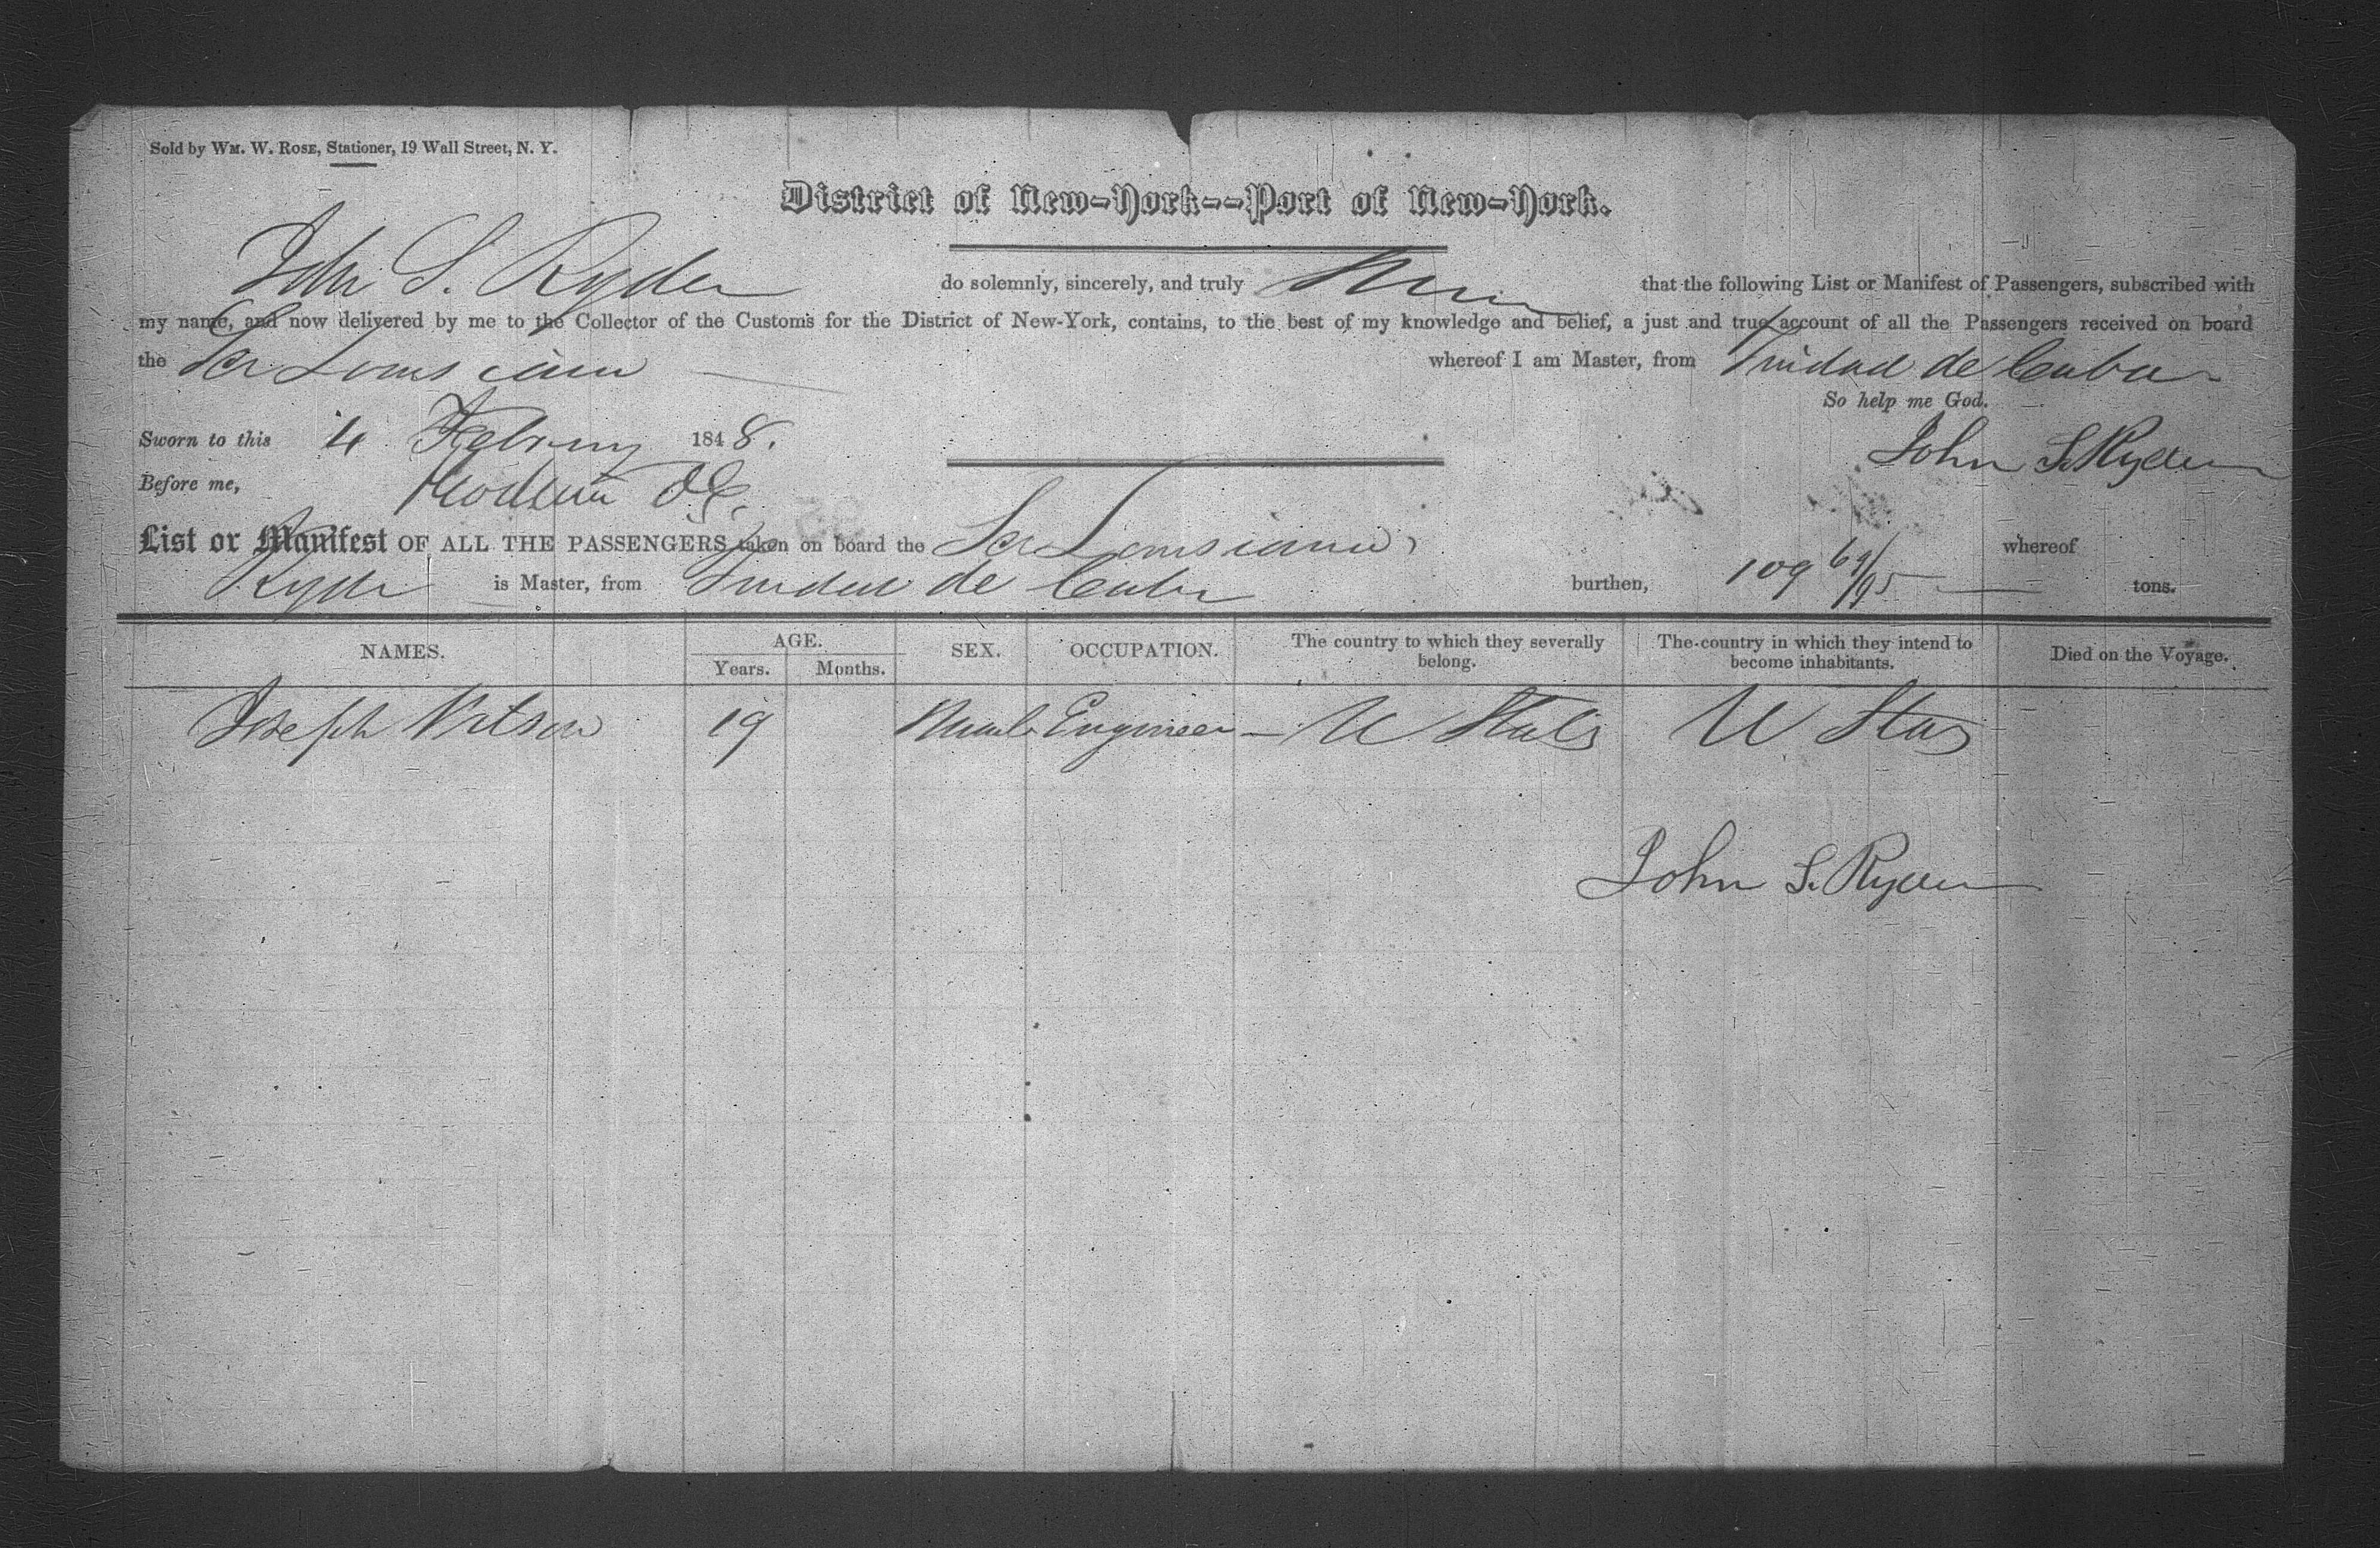 Sold by WM. W. ROSE, Stationer, 19 Wall Street, N. Y.
District of New-York--Port of New-York.
John S. Ryder do solemnly, sincerely, and truly that the following List or Manifest of Passengers, subscribed with
my name, and now delivered by me to the Collector of the Customs for the District of New-York, contains, to the best of my knowledge and belief, a just and true account of all the Passengers received on board
the Scr Louisiana whereof I am Master, from Trinidad de Cuba
So help me God.
Sworn to this 4 February 1848.
John S. Ryder
Before me,
List or Manifest OF ALL THE PASSENGERS taken on board the Scr Louisiana, whereof
Ryder is Master, from Trinidad de Cuba burthen, 109 69/95 tons.
NAMES. AGE. SEX. OCCUPATION. The country to which they severally belong. The country in which they intend to become inhabitants. Died on the Voyage.
Years. Months.
Joseph 19 Male Engineer - U States U Stas
John S. Ryder